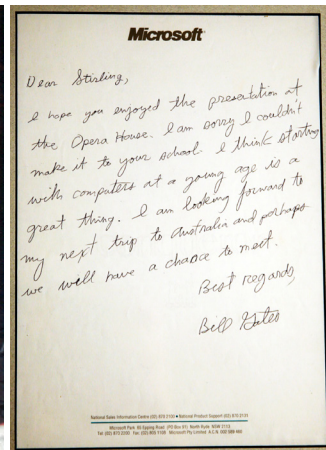 Microsoft
Dear Stirling,
I hope you enjoyed the presentation at
the Opera House. I am sorry I couldn't
make it to your school. I think starting
with computers at a young age is a
great thing. I am looking forward to
my next trip to Australia and perhaps
we will have a chance to meet.
Best regards,
Bill Gates
National Sales Information Centre (02) 870 2100 • National Product Support (02) 870 2131
Microsoft Park 65 Epping Road (PO Box 91) North Ryde NSW 2113
Tel: (02) 870 2200 Fax: (02) 805 1108 Microsoft Pty Limited A.C.N. 002 589 460